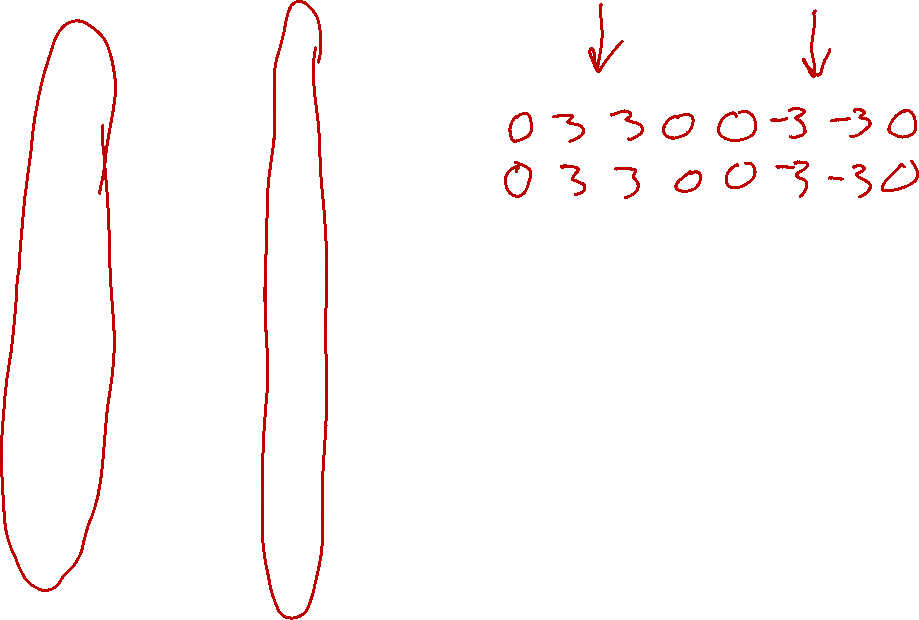 0 3 3 0 0 -3 -3 0
0 3 3 0 0 -3 -3 0